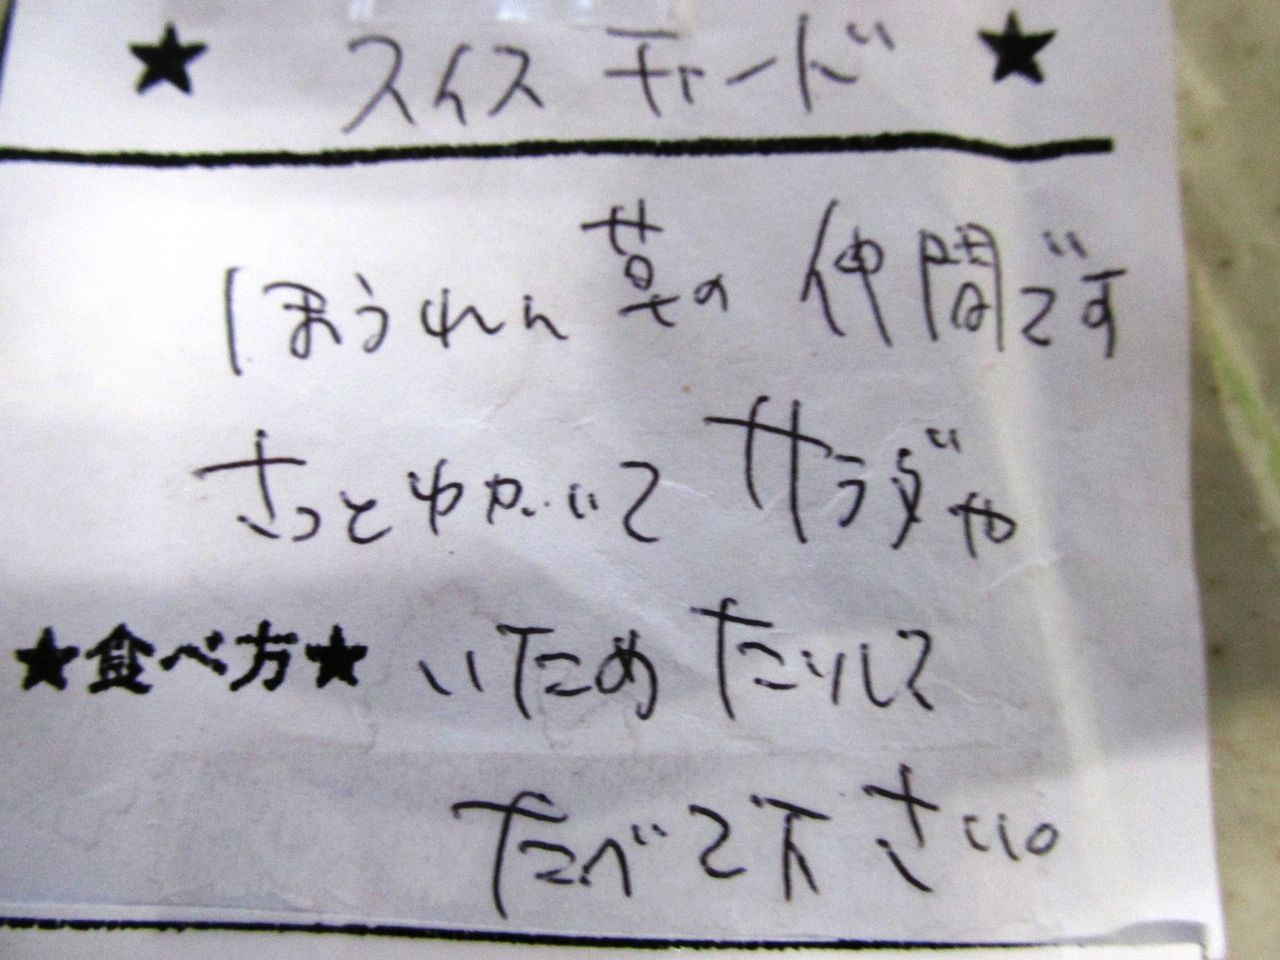 ★ スイスチャード ★
ほうれん草の仲間です
さっとゆがいてサラダや
★食べ方★ いためたりして
たべて下さい。